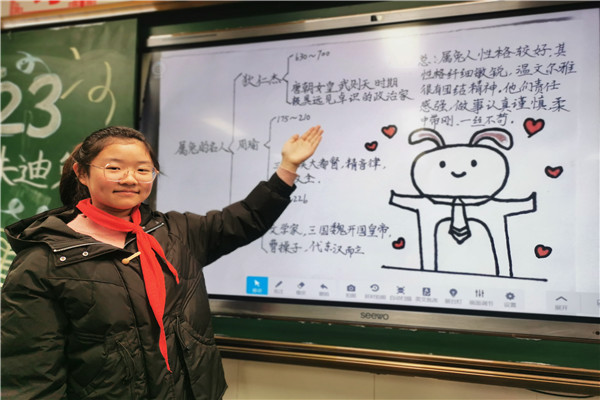 23
迪
属兔的名人
狄仁杰
630~700
唐朝女皇武则天时期
极具远见卓识的政治家
周瑜
175~210
大都督,精音律,
226
文学家,三国魏开国皇帝,
曹操子,代东汉而立
总:属兔人性格较好,其
性格纤细敏锐,温文尔雅
很有团结精神。他们责任
感强,做事认真谨慎柔
中带刚,一丝不苟。
seewo